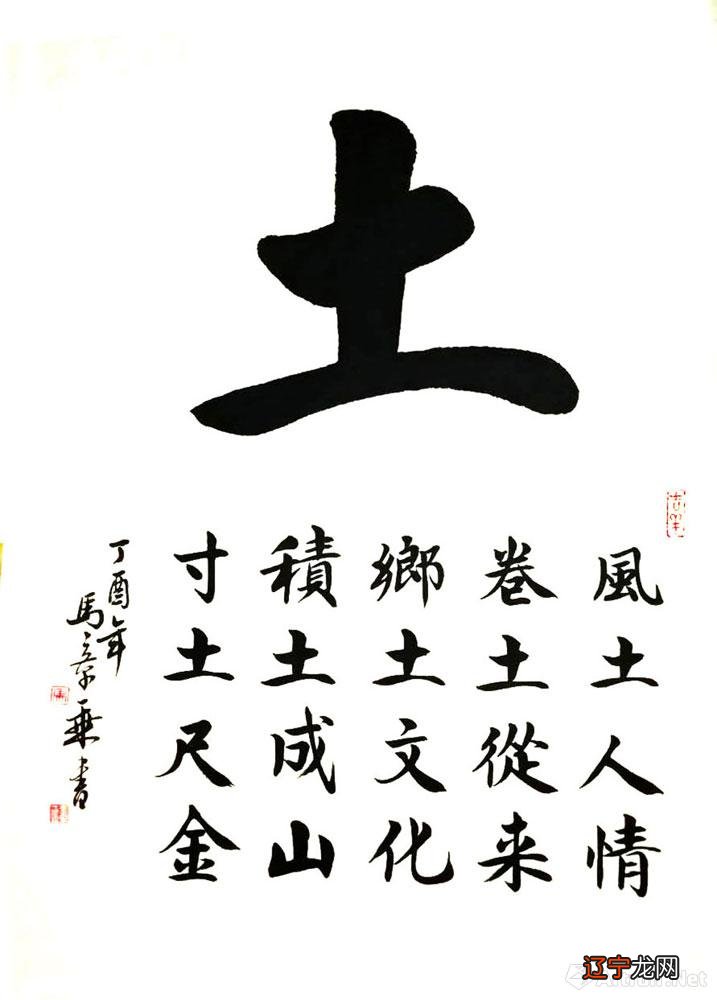 土
風土人情
卷土從来
鄉土文化
積土成山
寸土尺金
丁酉年
馬景乘書
辽宁龙网